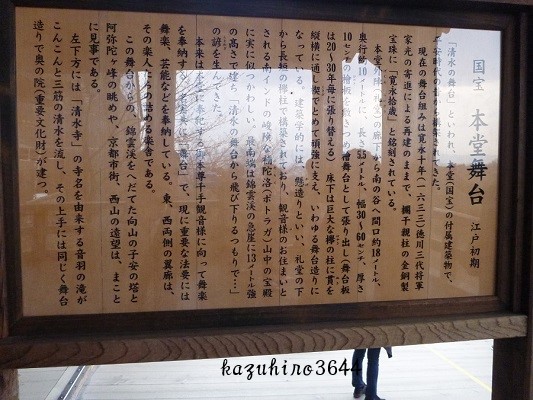 国宝 本堂舞台 江戸初期
「清水の舞台」といわれ、本堂(国宝)の付属建築物で、
平安時代の昔から構築されてきた。
現在の舞台組みは寛永十年(一六三三)徳川三代将軍
家光の寄進による再建のままで、欄干親柱の金銅製
宝珠に「寛永拾歳」と銘刻されている。
本堂外陣(礼堂)の廊下から南の谷へ間口約18メートル、
奥行約10メートルに、長さ5.5メートル、幅30〜60センチ、厚さ
10センチの檜板を敷きつめ檜舞台として張り出し(舞台板
は20〜30年毎に張り替える)床下は巨大な欅の柱に貫を
縦横に通し楔でとめて頑強に支え、いわゆる舞台造りに
なっている。建築学的には、懸造りといい、礼堂の下
から長短の欅柱で構築されており、観音様のお住まいと
される南インドの峻険な補陀洛(ポトラガ)山中の宝殿
に実に似つかわしい。最南端は錦雲渓の急崖に13メートル強
の高さで建ち「清水の舞台から飛び下りるつもりで…」
の諺を生んできた。
本来は本堂に奉祀する御本尊千手観音様に向って舞楽
を奉納する文字通りの「舞台」で、現に重要な法要には
舞楽、芸能などを奉納している。東、西両側の翼廊は、
その楽人たちの詰める楽舎である。
この舞台からの、錦雲渓をへだてた向山の子安の塔と
阿弥陀ヶ峰の眺めや、京都市街、西山の遠望は、まこと
に見事である。
左下方には「清水寺」の寺名を由来する音羽の滝が
こんこんと三筋の清水を流し、その上手には同じく舞台
造りで奥の院(重要文化財)が建つ。
kazuhiro3644